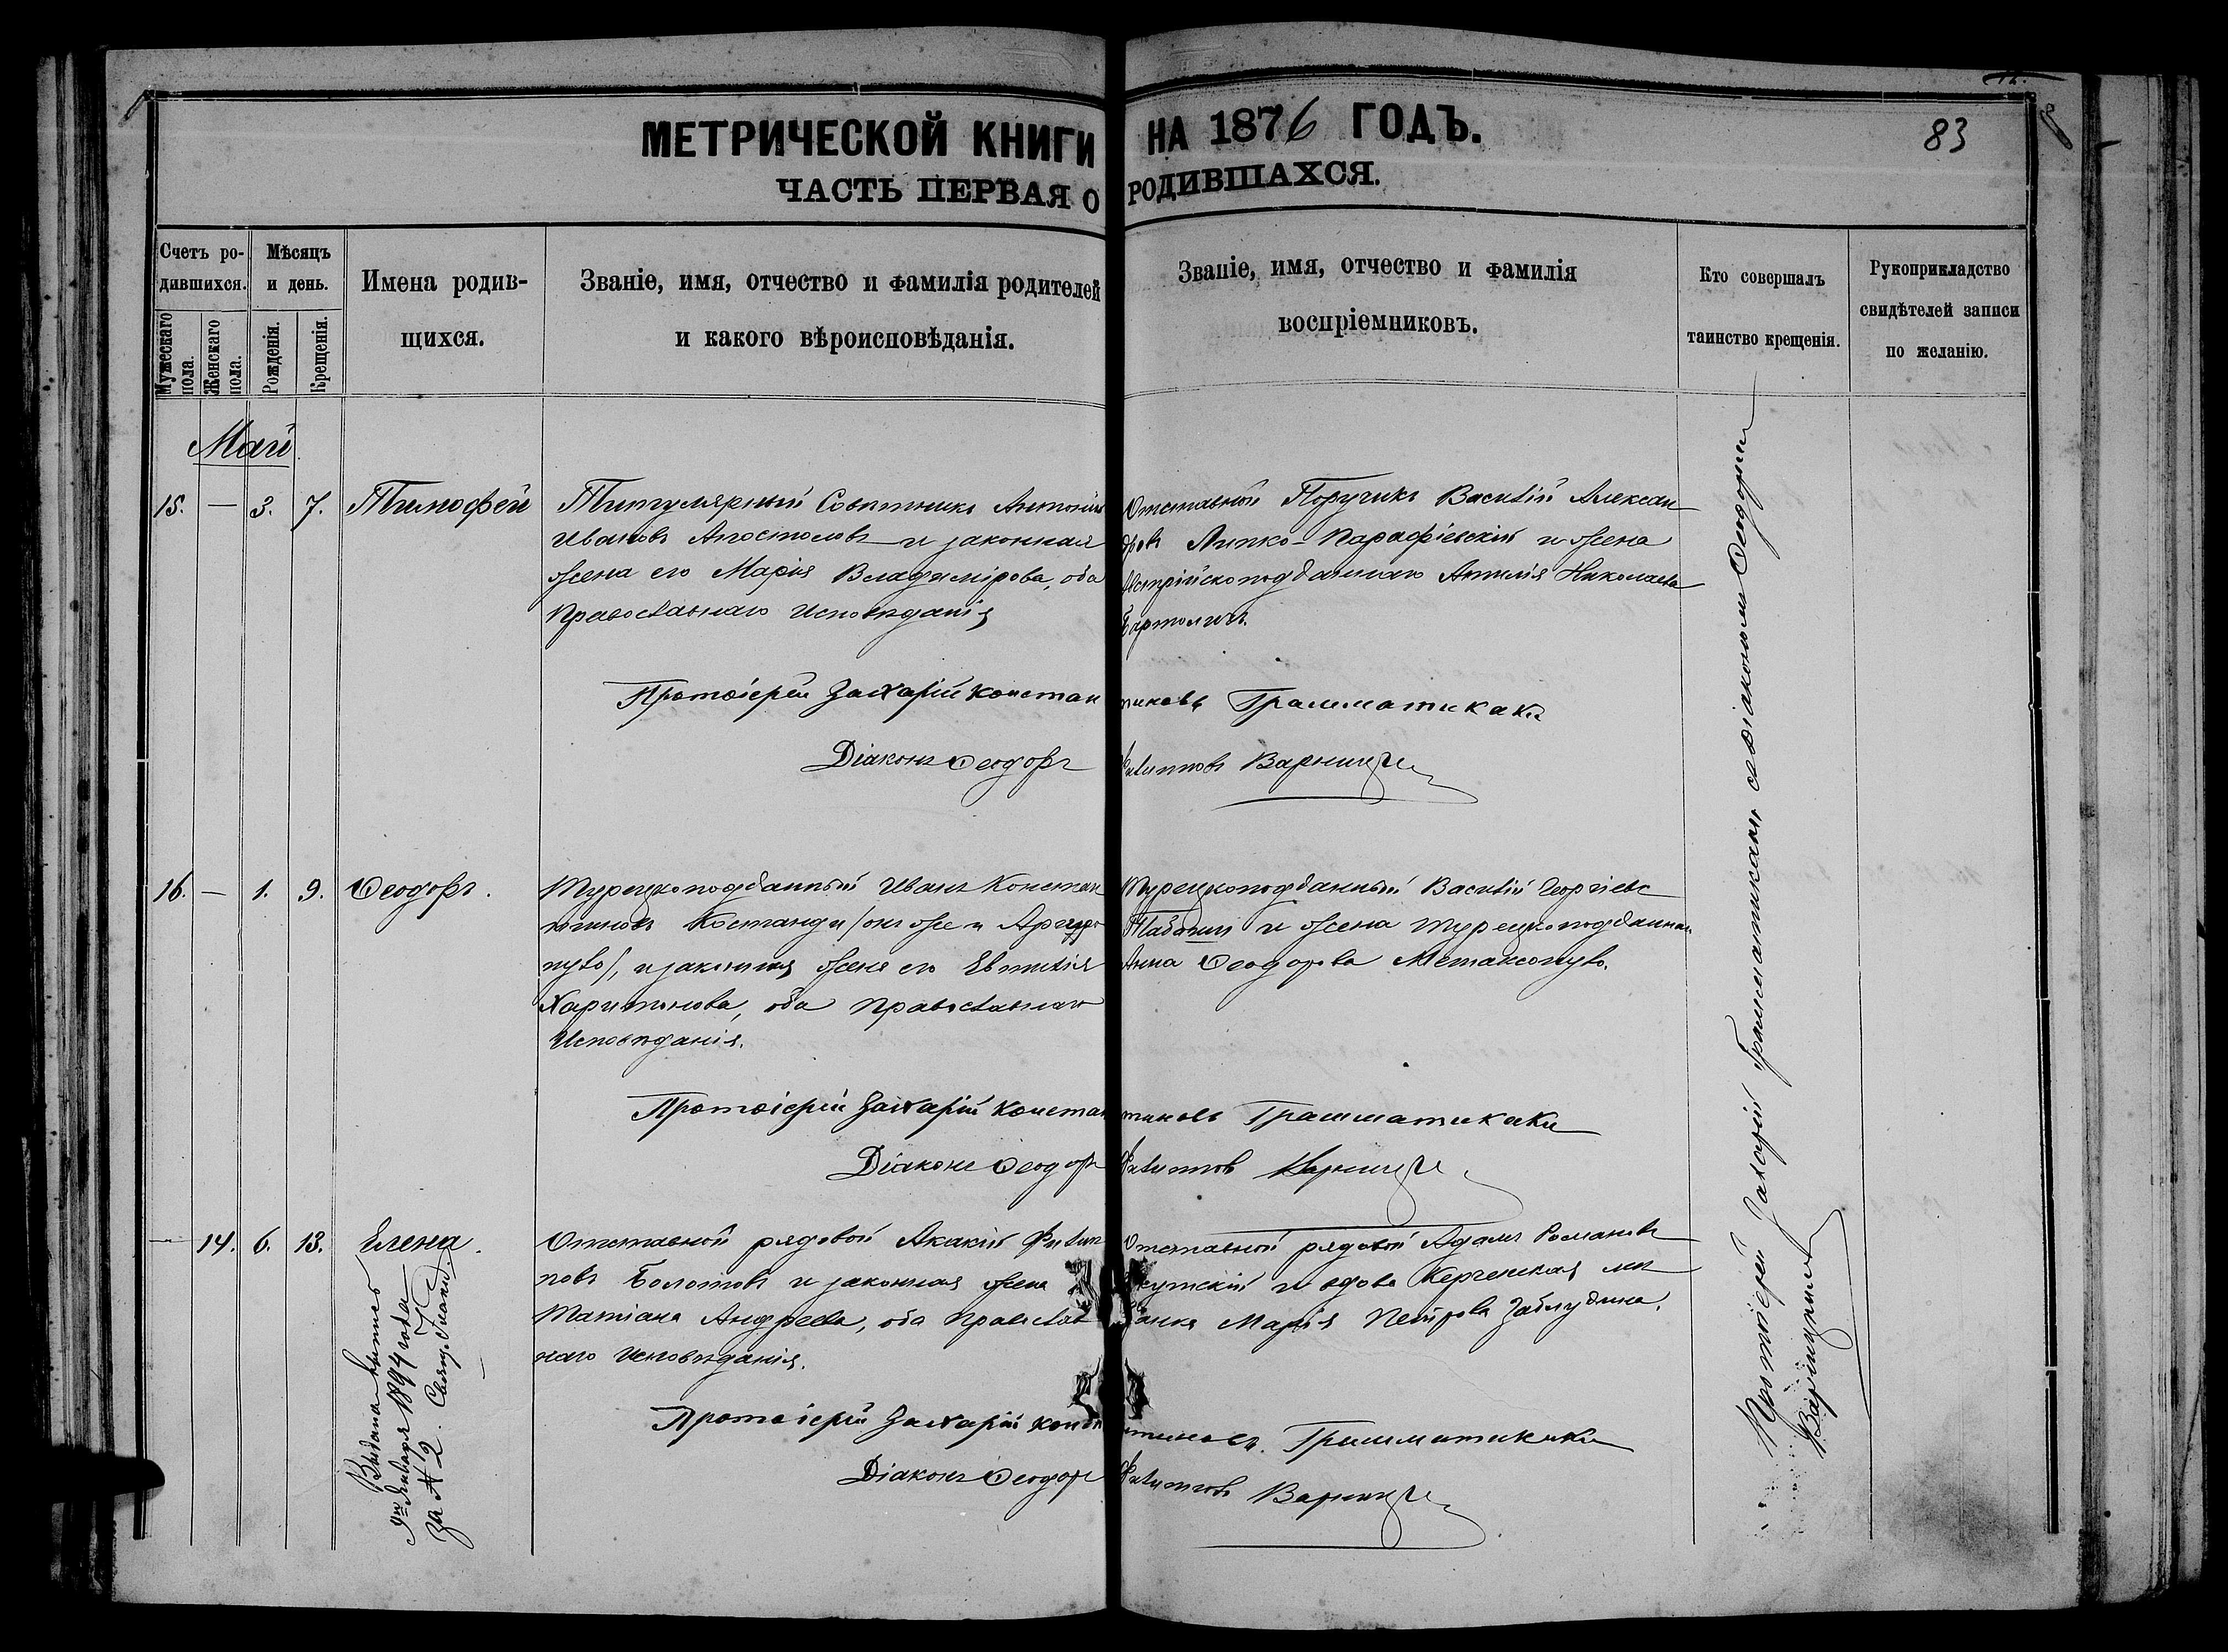 МЕТРИЧЕСКОЙ КНИГИ НА 1876 ГОДЪ.
83
ЧАСТЬ ПЕРВАЯ О РОДИВШАХСЯ.
Счетъ ро-
дившихся.
Мужескаго пола.
Женскаго пола.
Мѣсяцъ
и день.
Рожденія.
Крещенія.
Имена родив-
щихся.
Званіе, имя, отчество и фамилія родителей
и какого вѣроисповѣданія.
Званіе, имя, отчество и фамилія
воспріемниковъ.
Кто совершалъ
таинство крещенія.
Рукоприкладство
свидѣтелей записи
по желанію.
Май
15. — 3. 7. Тимофей
Титулярный Совѣтникъ Антоній
Ивановъ Апостоловъ и законная
жена его Марія Владимірова, оба
Православнаго Исповѣданія
Отставной Поручикъ Василій Алексан
дровъ Липко-Парафіевскій и жена
Австрійскоподданнаго Амилія Николаева
Бартоличъ.
Протоіерей Захарій Константиновъ Грамматикаки
Діаконъ Ѳеодоръ Филипповъ
16. — 1. 9. Ѳеодоръ.
Турецкоподданный Иванъ Констан
тиновъ Костанди /онъ же и Аргиро
пуло/, и законная жена его Евпихія
Харитонова, оба Православнаго
Исповѣданія.
Турецкоподданный Василій Георгіевъ
и жена Турецкоподданная
Анна Ѳеодорова Метаксопуло.
Протоіерей Захарій Константиновъ Грамматикаки
Діаконъ Ѳеодоръ Филиппов
— 14. 6. 13. Елена.
Отставной рядовой Акакій Филип
повъ Болотовъ и законная жена
Татіана Андреева, оба Православ
наго Исповѣданія.
Отставной рядовой Адамъ Романовъ
и вдова Керченская мѣ
щанка Марія Петрова Заблудина.
Протоіерей Захарій Константиновъ. Грамматикаки
Діаконъ Ѳеодоръ Филипповъ
Выдана
9го Января 1894 года
За № 2.
Протоіерей Захарій Грамматикаки, съ Діакономъ Ѳеодоромъ